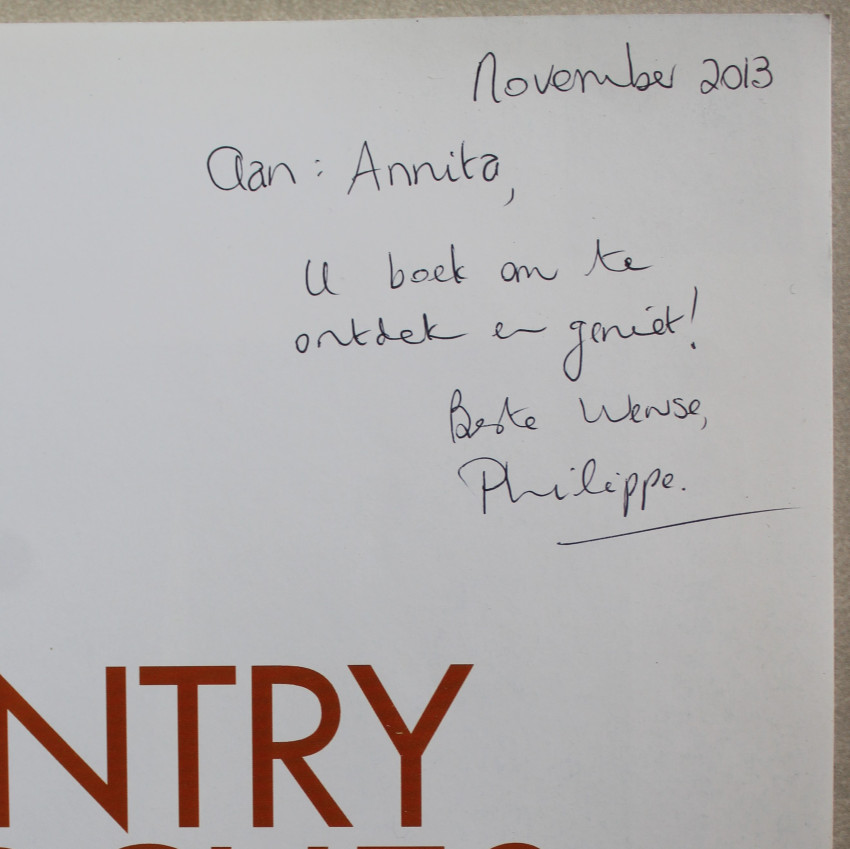 November 2013
Aan: Annita,
U boek om te
ontdek en geniet!
Beste Wense,
Philippe.
NTRY